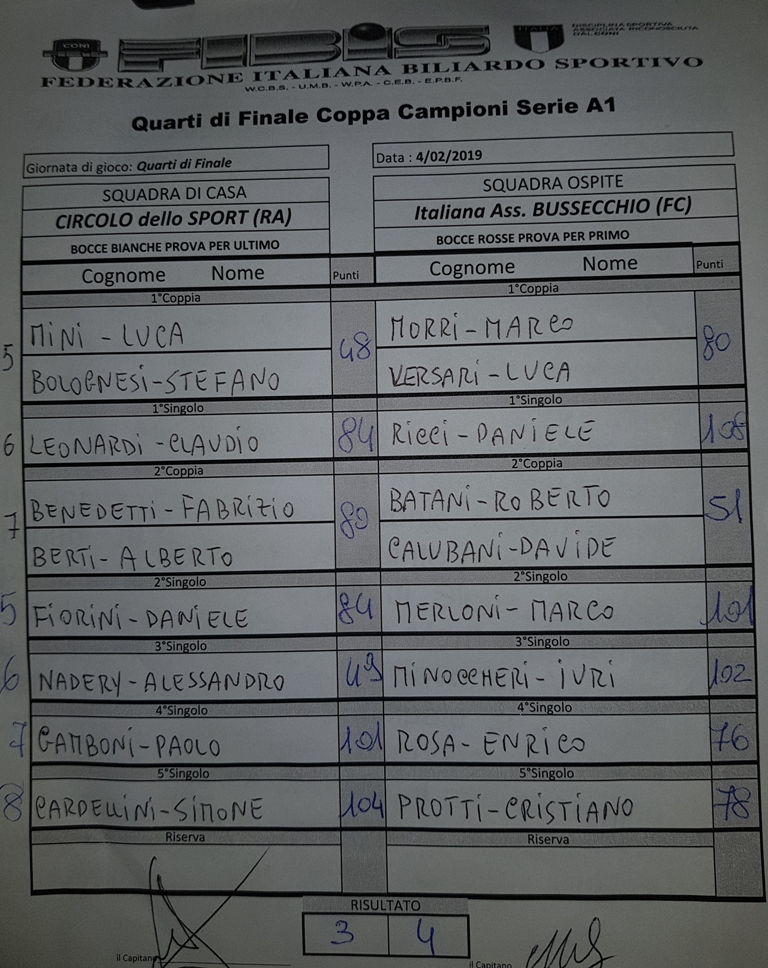 CONI FIBiS ITALIA DISCIPLINA SPORTIVA
ASSOCIATA RICONOSCIUTA
DAL CONI
FEDERAZIONE ITALIANA BILIARDO SPORTIVO
W.C.B.S. - U.M.B. - W.P.A. - C.E.B. - E.P.B.F.
Quarti di Finale Coppa Campioni Serie A1
Giornata di gioco: Quarti di Finale Data : 4/02/2019
SQUADRA DI CASA SQUADRA OSPITE
CIRCOLO dello SPORT (RA) Italiana Ass. BUSSECCHIO (FC)
BOCCE BIANCHE PROVA PER ULTIMO BOCCE ROSSE PROVA PER PRIMO
Cognome Nome Punti Cognome Nome Punti
1°Coppia 1°Coppia
5 MINI - LUCA 48 MORRI - MARCO 80
BOLOGNESI - STEFANO VERSARI - LUCA
1°Singolo 1°Singolo
6 LEONARDI - CLAUDIO 84 RICCI - DANIELE 108
2°Coppia 2°Coppia
7 BENEDETTI - FABRIZIO 80 BATANI - ROBERTO 51
BERTI - ALBERTO CALUBANI - DAVIDE
2°Singolo 2°Singolo
5 FIORINI - DANIELE 84 MERLONI - MARCO 101
3°Singolo 3°Singolo
6 NADERY - ALESSANDRO 49 MINOCCHERI - IURI 102
4°Singolo 4°Singolo
7 GAMBONI - PAOLO 101 ROSA - ENRICO 76
5°Singolo 5°Singolo
8 CARDELLINI - SIMONE 104 PROTTI - CRISTIANO 78
Riserva Riserva
RISULTATO
3 4
il Capitano il Capitano